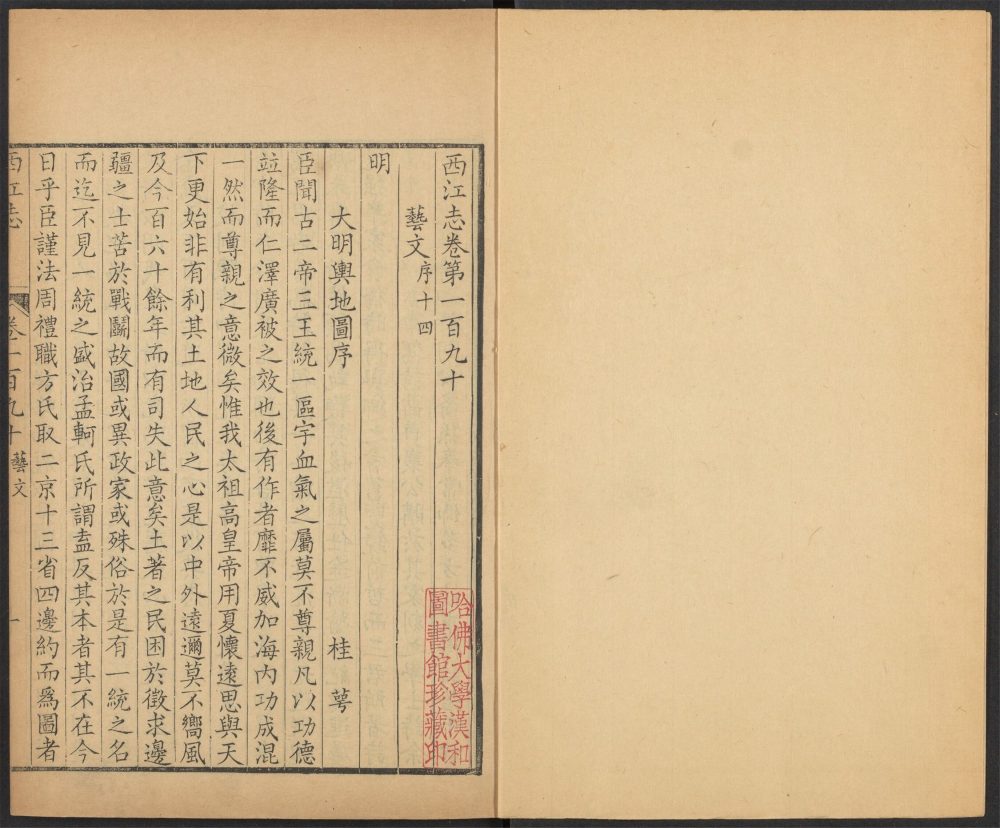 西江志卷第一百九十
藝文序十四
明
大明輿地圖序 桂萼
臣聞古二帝三王統一區宇血氣之屬莫不尊親凡以功德
竝隆而仁澤廣被之效也後有作者靡不威加海内功成混
一然而尊親之意微矣惟我太祖高皇帝用夏懷遠思與天
下更始非有利其土地人民之心是以中外遠邇莫不嚮風
及今百六十餘年而有司失此意矣土著之民困於徵求邊
疆之士苦於戰鬬故國或異政家或殊俗於是有一統之名
而迄不見一統之盛治孟軻氏所謂盍反其本者其不在今
日乎臣謹法周禮職方氏取二京十三省四邊約而爲圖者
西江志 卷一百九十 藝文 一
哈佛大學漢和
圖書館珍藏印